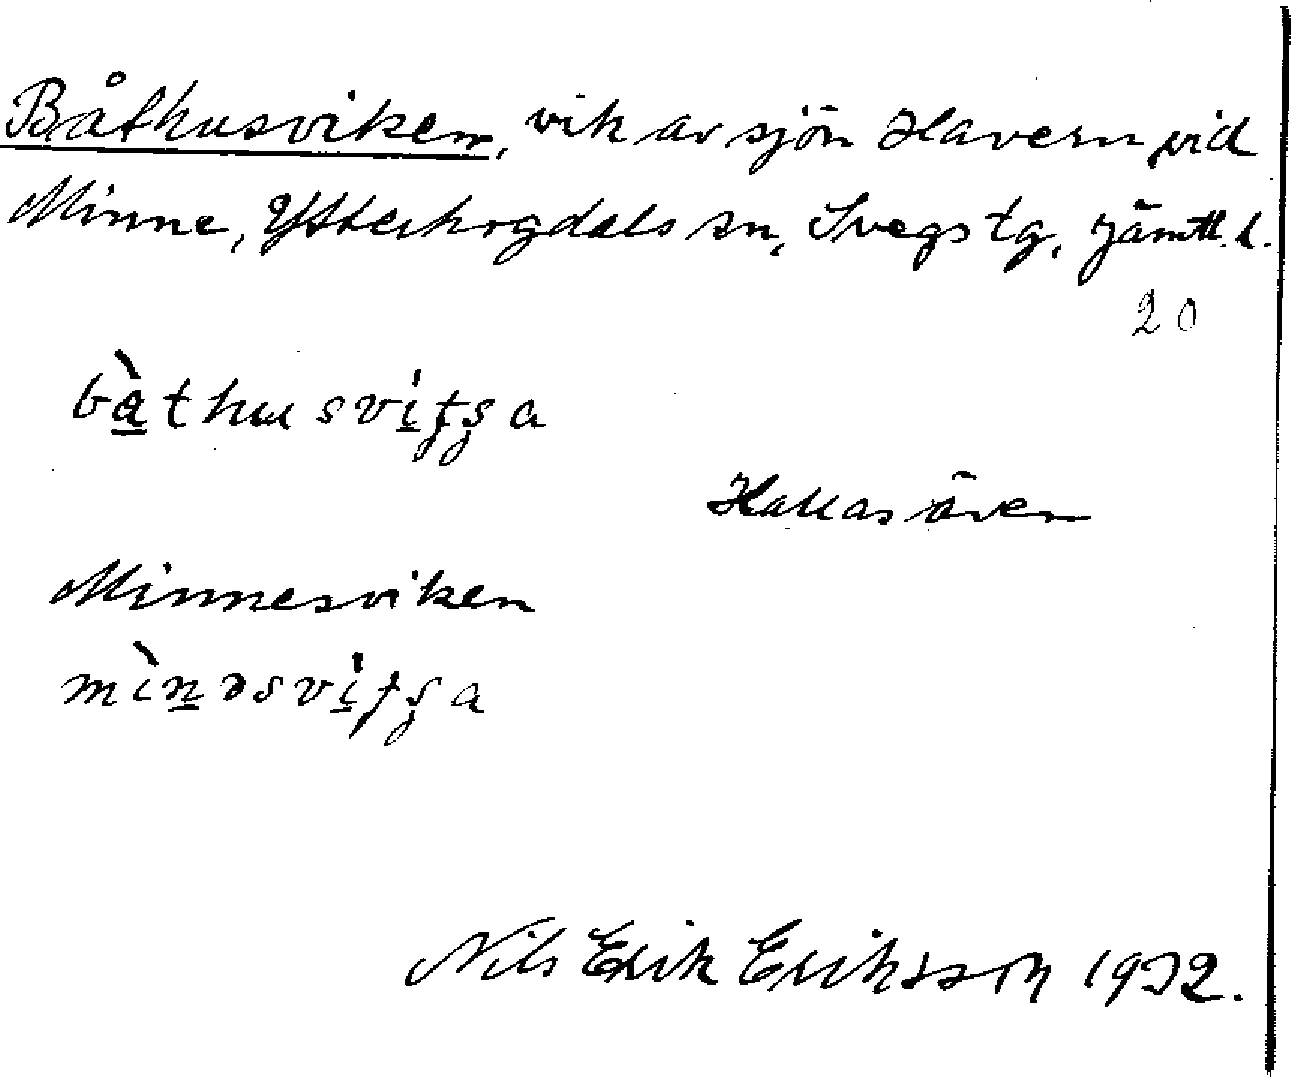 Båthusviken, vik av sjön Havern vid
Minne, Ytterhogdals sn, Svegs tg, Jämtl. l.
20
Kallas även
Minnesviken
Nils Erik Eriksson 1932.